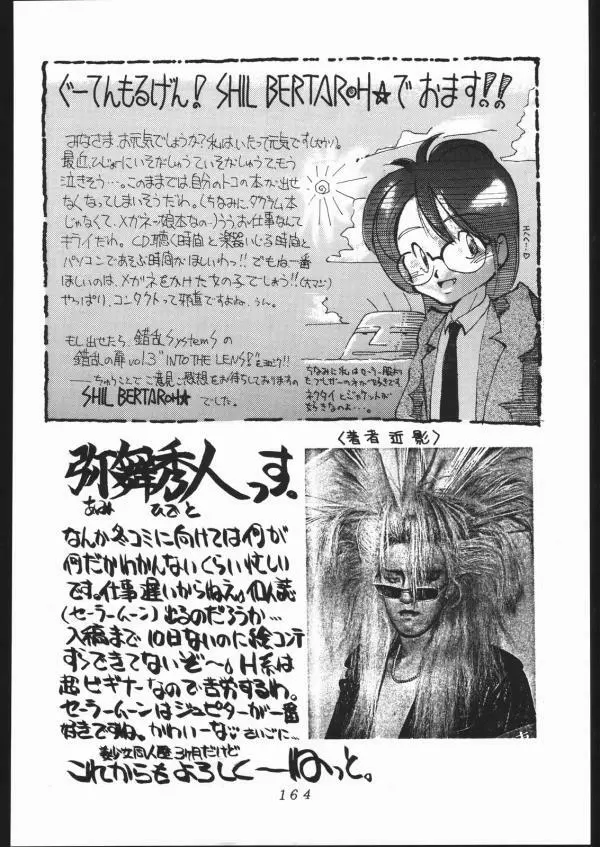 ぐーてんもるげん! SHIL BERTAR◎H☆でおます!!
みなさま お元気でしょうか?私はいたって元気です(大ウソ)。
最近、ひじょーにいそがしゅうていそがしゅうて、もう
泣きそう…。このままでは自分のトコの本が出せ
なくなってしまいそうだわ。(ちなみに、タカラヅカ本
じゃなくて、メガネっ娘本なの…)うう、お仕事なんて
キライだわ。CD聴く時間と楽器いじる時間と
パソコンであそぶ時間がほしいわっ!!でもね一番
ほしいのは、メガネをかけた女の子でしょう!!(大マジ)
やっぱり、コンタクトって邪道ですよね、うん。
エヘヘ…♡
もし出せたら、錯乱SystemSの
錯乱の扉 vol.3 "INTO THE LENS"をヨロピク!!
―ちゅうことでご意見ご感想をお待ちしておりますの
SHIL BERTAR◎H☆でした。
ちなみに私はセーラー服より
もブレザーの方が好きです
ネクタイとジャケットが
好きなのよ…。
弥舞秀人っす。
あみ ひでと
<著者近影>
なんか冬コミに向けては何が
何だかわかんないくらい忙しい
です。仕事遅いからねえ。個人誌
(セーラームーン)出るのだろうか…
入稿まで10日ないのに絵コンテ
すらできてないぞ〜。H系は
超ビギナーなので苦労するわ。
セーラームーンはジュピターが一番
好きですね。かわいーな。さいごに…
美少女同人歴3ヶ月だけど
これからもよろしく〜ねっと。
164